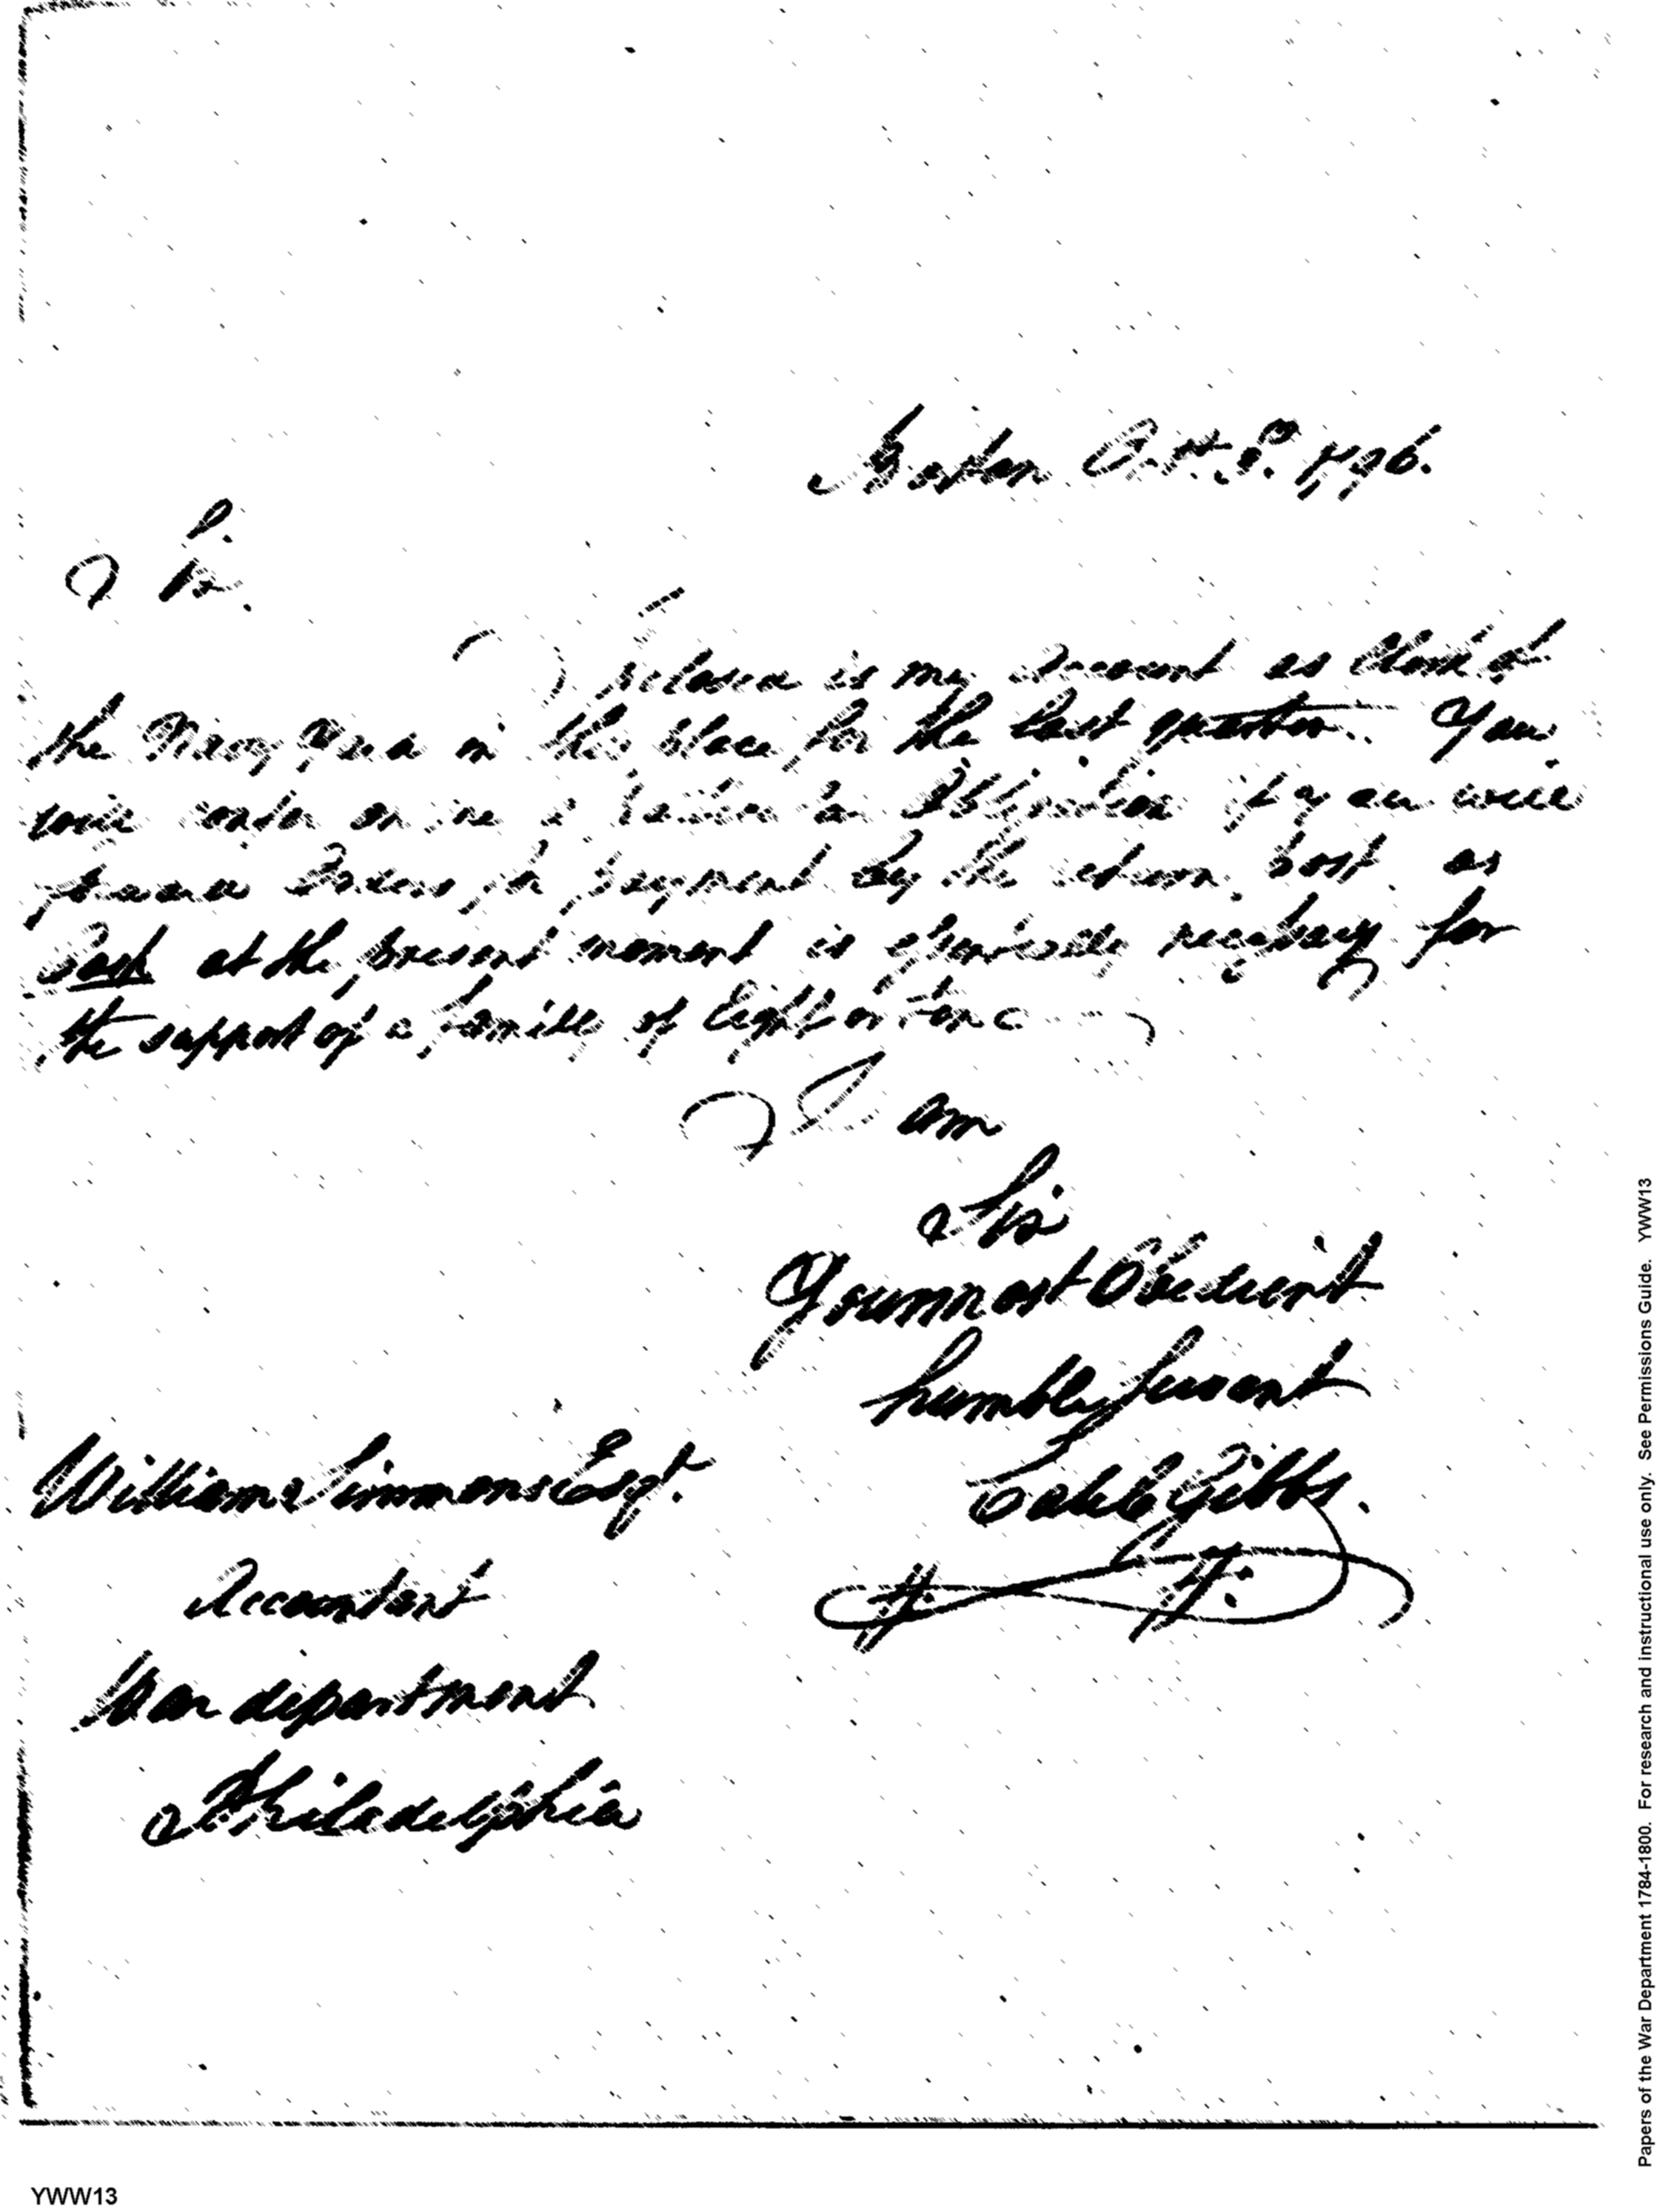 Boston Oct. 8th. 1796.
Sir.
Inclosed is my Account as Clerk of
the Navy Yard in this place for the last quarter. You
will confer on me a obligation if you will
forward me payment by the return post. as
Cash at the present moment is necessary for
the support of a family of Eight or ten
I am
Sir
Your most Obedient
humble Servant
Caleb Gibbs.
William Simmons Esqr.
Accountant
War department
Philadelphia
Papers of the War Department 1784-1800. For research and instructional use only. See Permissions Guide. YWW13
YWW13